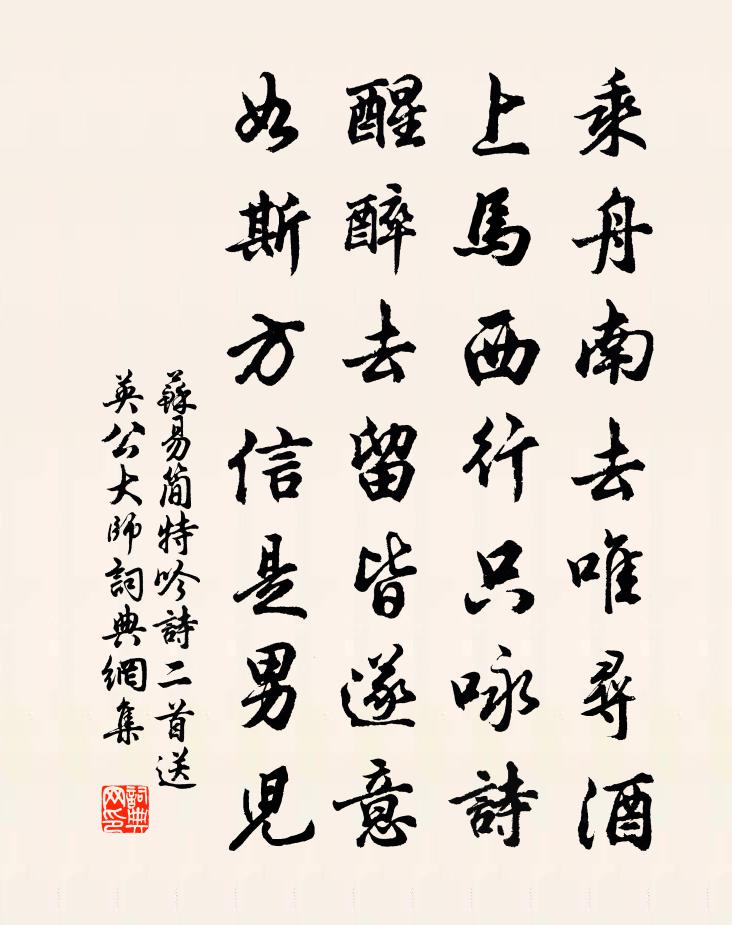 乘舟南去唯尋酒
上馬西行只咏詩
醒醉去留皆遂意
如斯方信是男兒
蘇易簡特吟詩二首送
英公大師詞典網集
詞典
网印